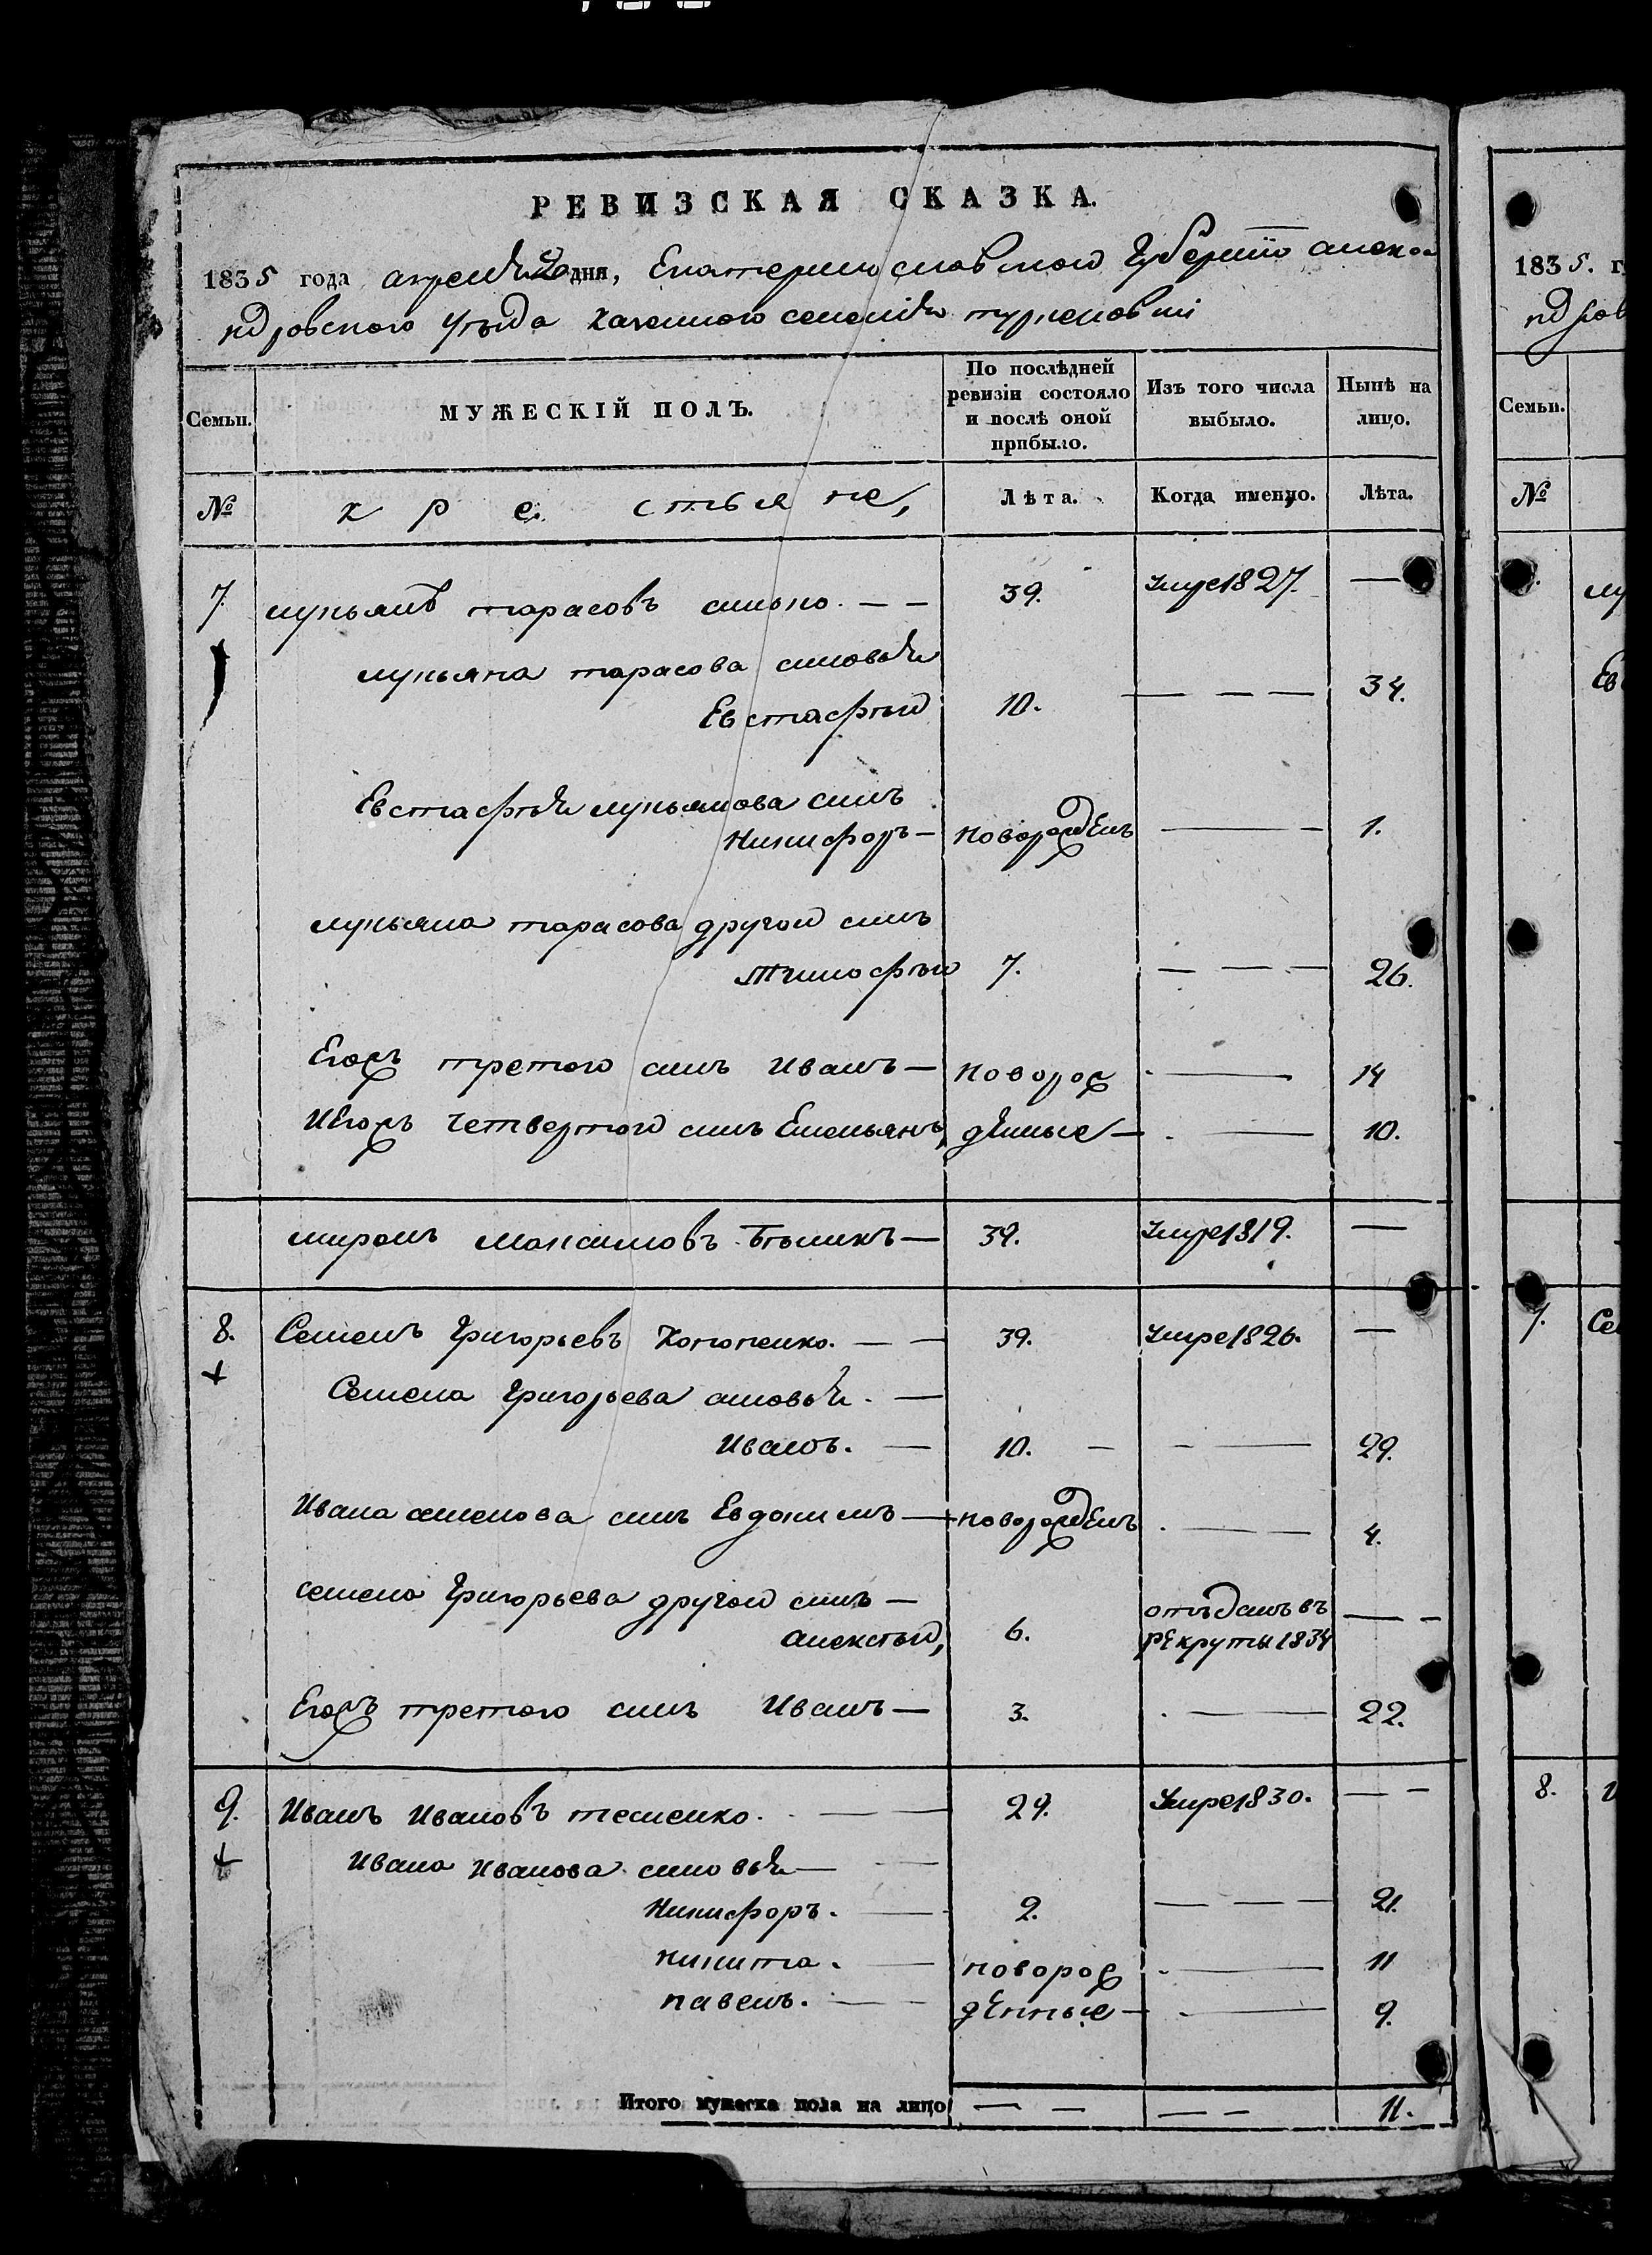 РЕВИЗСКАЯ СКАЗКА.
1835 года апреля 20 дня, Екатеринославской Губернiи алекса
ндровского уѣзда казенного селенiя туркеновки
Семьи.
МУЖЕСКІЙ ПОЛЪ.
По послѣдней ревизіи состояло и послѣ оной прибыло.
Изъ того числа выбыло.
Нынѣ на лицо.
№ крестьяне, Лѣта. Когда именно. Лѣта.
7. лукьянъ тарасовъ 39. умре 1827. —
лукьяна тарасова сыновья
Евстафѣй 10. — — — 34.
Евстафѣя лукьянова сынъ
Никифоръ — новорожденъ — 1.
лукьяна тарасова другой сынъ
Тимофѣй 7. — — — 26.
Егожъ третой сынъ Иванъ — новорож — 14
Иегожъ четвертой сынъ Емельянъ, денные — — 10.
миронъ максимовъ Бѣликъ — 39. умре 1819. —
8. Семенъ Григорьевъ Кононенко. — — 39. умре 1826. —
Семена Григорьева сыновья. —
Иванъ. — 10. — — — 29.
Ивана семенова сынъ Евдокимъ — новорожденъ — 4.
семена Григорьева другой сынъ —
алексѣй, 6. отъданъ въ рекруты 1834 — —
Егожъ третого сынъ Иванъ — 3. — 22.
9. Иванъ Ивановъ тесленко. — — 29. Умре 1830. — —
Ивана Иванова сыновья — —
Никифоръ. — 2. — — — 21.
никита. — новорож — 11
павелъ. — — денные — — 9.
Итого мужеска пола на лицо — — — — 11.
1835. г
ндров
Семьи.
№
лу
Ев
7. Се
8.